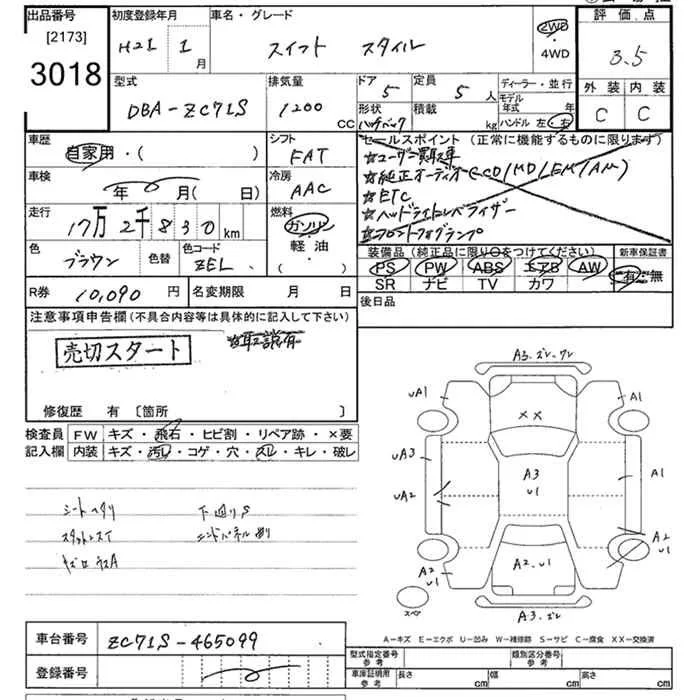 出品番号
[2173]
3018
初度登録年月
H21 1月
車名・グレード
スイフト スタイル
2WD
・4WD
評価点
3.5
外装 内装
C C
型式
DBA-ZC71S
排気量
1200 CC
ドア
5
定員
5人
形状
ハッチバック
積載
kg
ディーラー・並行
モデル年式 年
ハンドル 左・右
車歴
自家用・( )
シフト
FAT
車検
年 月(日)
冷房
AAC
走行
17万2千830km
燃料
ガソリン
軽油
・( )
色
ブラウン
色替
色コード
ZEL
セールスポイント(正常に機能するものに限ります)
☆ユーザー買取車
☆純正オーディオ(CD/MD/FM/AM)
☆ETC
☆ヘッドライトレベライザー
☆フロントフォグランプ
装備品(純正品に限り○をつけてください)
PS PW ABS エアB AW
SR ナビ TV カワ
新車保証書
有・無
R券 10,090円
名変期限 月 日
後日品
注意事項申告欄(不具合内容等は具体的に記入して下さい)
売切スタート
☆取説有
修復歴 有〔箇所 〕
検査員記入欄
FW キズ・飛石・ヒビ割・リペア跡・×要
内装 キズ・汚レ・コゲ・穴・スレ・キレ・破レ
シートヘタリ
下廻りS
A3.ズレ.ワレ
UA1
A1
XX
UA3
A3
U1
A1
UA2
A2
U1
A2
U1
A2.U1
スペア
A3.ズレ
A-キズ E-エクボ U-凹み W-補修跡 S-サビ C-腐食 XX-交換済
車台番号
ZC71S-465099
登録番号
型式指定番号
参考
類別区分番号
参考
車庫証明用
参考
長さ cm
幅 cm
高さ cm